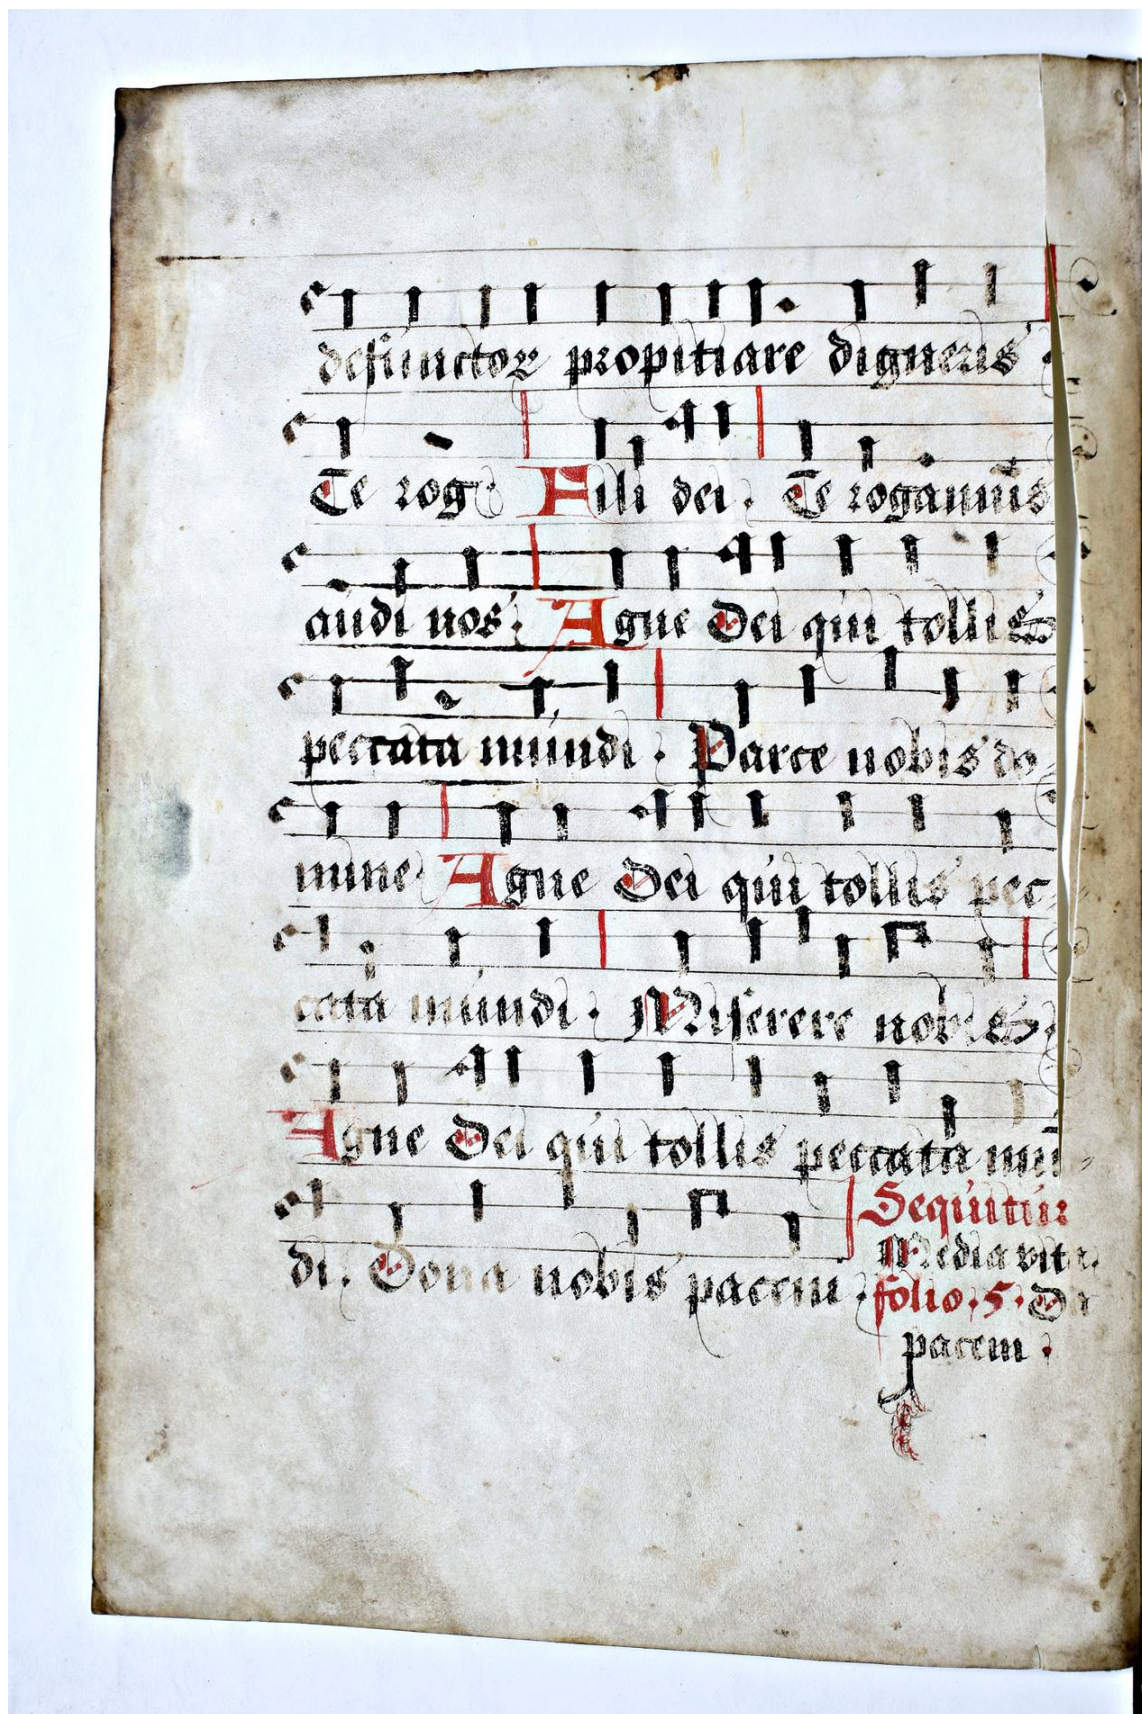 defunctoꝝ propitiare digneris .
Te rog Fili dei . Te rogamus
audi nos : Agne Dei qui tollis
peccata mundi . Parce nobis do
mine . Agne Dei qui tollis pec
cata mundi . Miserere nobis .
Agne Dei qui tollis peccata mun
di . Dona nobis pacem .
Sequitur
Media vita .
folio . 5 . Da
pacem .